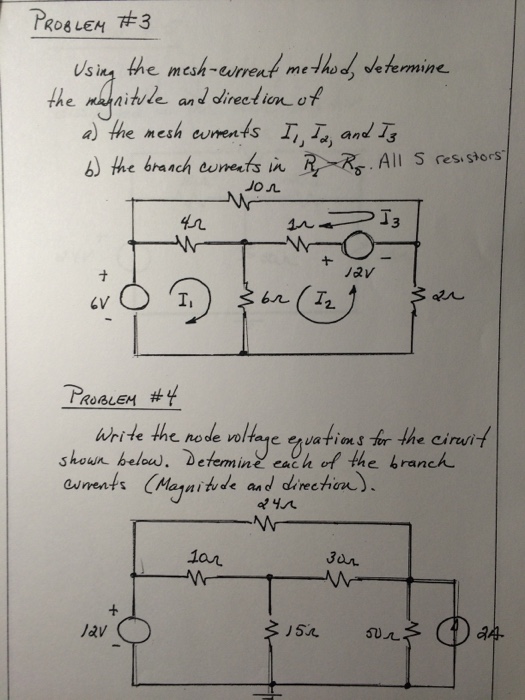 PROBLEM #3
Using the mesh-current method, determine
the magnitude and direction of
a) the mesh currents I1, I2, and I3
b) the branch currents in R1-R5. All 5 resistors
10Ω
4Ω
1Ω
I3
+ -
12V
+
6V
-
I1
6Ω
I2
2Ω
PROBLEM #4
Write the node voltage equations for the circuit
shown below. Determine each of the branch
currents (Magnitude and direction).
24Ω
10Ω
30Ω
+
12V
-
15Ω
50Ω
2A